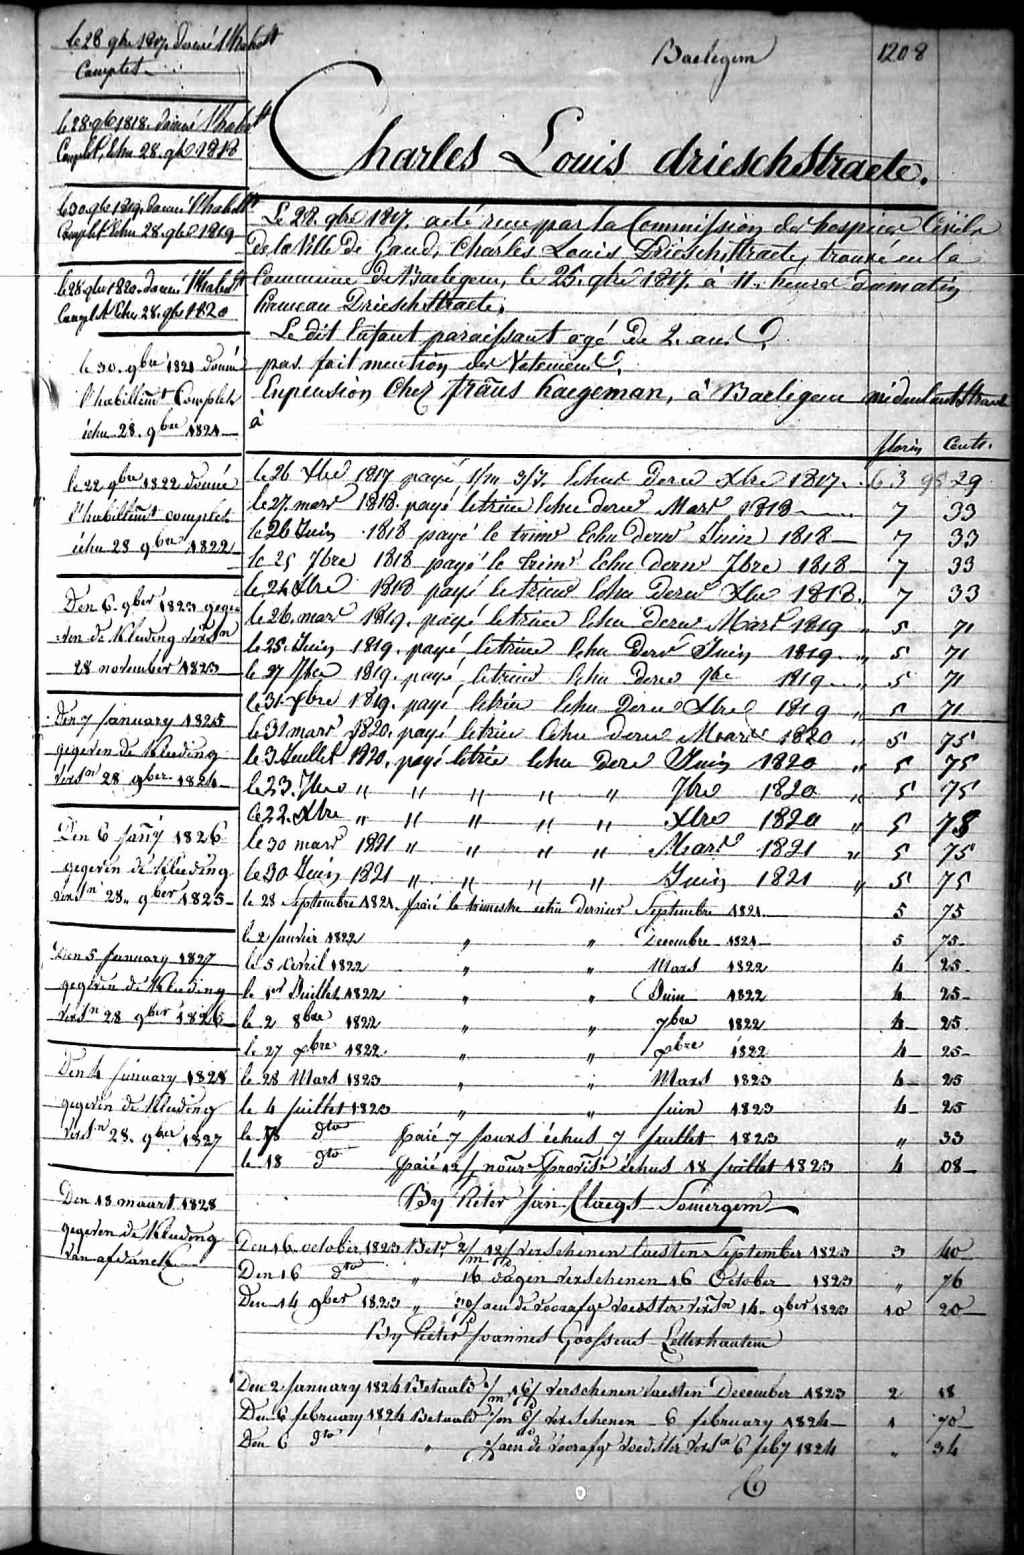 Baelegem 1208
Charles Louis drieschstraete.
le 28 9bre 1817 donné l'habillt
Complet
le 28 9bre 1818. donné l'habillt
Complet, Echu 28. 9bre 1818
le 30 9bre 1819. donné l'habillt
Complet Echu 28. 9bre 1819
le 28 9bre 1820. donné l'habillt
Complet Echu 28. 9bre 1820
le 30. 9bre 1821 donné
l'habillemt Complet
échu 28. 9bre 1821
le 22 9bre 1822 donné
l'habillemt complet
échu 28 9bre 1822
Den 6 9ber 1823 gege
ven de Kleeding versn
28 november 1823
Den 7 January 1825
gegeven de Kleeding
versn 28 9ber 1824
Den 6 Jany 1826
gegeven de Kleeding
versn 28. 9ber 1825
Den 5 January 1827
gegeven de Kleeding
versn 28 9ber 1826
Den 4 January 1828
gegeven de Kleeding
versn 28. 9ber 1827
Den 13 maart 1828
gegeven de Kleeding
van afdanck
Le 28. 9bre 1817. a été reçu par la Commission des hospices Civils
de la Ville de Gand, Charles Louis, Drieschstraete, trouvé en la
Commune de Baelegem, le 25. 9bre 1817. à 11. heures du matin
hameau Drieschstraete.
Le dit Enfant paraissant agé de 2. ans
pas fait mention des Vetements.
En pension Chez frans haegeman, à Baelegem
à
florins Cents.
le 26 Xbre 1817 payé 1/m 3/J. Echus Derr Xbre 1817. 29
le 27. mars 1818. payé le trim Echu derr Mars 1818 7 33
le 26 Juin 1818 payé le trimr Echu derr Juin 1818 7 33
le 25 7bre 1818 payé le trimr Echu derr 7bre 1818 7 33
le 24 Xbre 1818 payé le trimr Echu Derr Xbre 1818. 7 33
le 26. mars 1819. payé le trim Echu derr Mars 1819 " 5 71
le 25. Juin 1819. payé le trim Echu derr Juin 1819. " 5 71
le 27 7bre 1819. payé le trim Echu derr 7bre 1819 " 5 71
le 31 Xbre 1819. payé le trim Echu Derr Xbre 1819 " 5 71
le 31 mars 1820. payé le trim Echu derr Mars 1820 " 5 75
le 3 Juillet 1820. payé le trim Echu Derr Juin 1820 " 5 75
le 23. 7bre " " " " " 7bre 1820 " 5 75
le 22. Xbre " " " " " Xbre 1820 " 5 75
le 30 mars 1821 " " " " " Mars 1821 " 5 75
le 30 Juin 1821 " " " " Juin 1821 " 5 75
le 28 Septembre 1821. Paié le trimestre echu dernier Septembre 1821 5 75
le 2 Janvier 1822 " " Decembre 1821 5 75
le 5 Avril 1822 " " Mars 1822 4 25
le 1er Juillet 1822 " " Juin 1822 4 25
le 2 8bre 1822 " " 7bre 1822 4 25
le 27 Xbre 1822 " " Xbre 1822 4 25
le 28 Mars 1823 " " Mars 1823 4 25
le 4 Juillet 1823 " " Juin 1823 4 25
le 18 dto Paié 7 Jours échus 7 Juillet 1823 " 33
le 18 dto échus 18 Juillet 1823 4 08
By Pieter Jan Claeys Somergem
Den 16 october 1823 Bet. 2/m 12/d verschenen laesten September 1823 3 40
Den 16 dto " 16 dagen verschenen 16 October 1823 " 76
Den 14 9ber 1823 " aen de voorafge voedster versn 14 9ber 1823 10 20
By Pieter Joannes Goossens Letterhautem
Den 2 January 1824 Betaald 1/m 16/d verschenen laesten December 1823 2 18
Den 6 february 1824 Betaald 1/m 6/d verschenen 6 february 1824 1 70
Den 6 dto " aen de voorafge voedster versn 6 feby 1824 " 34